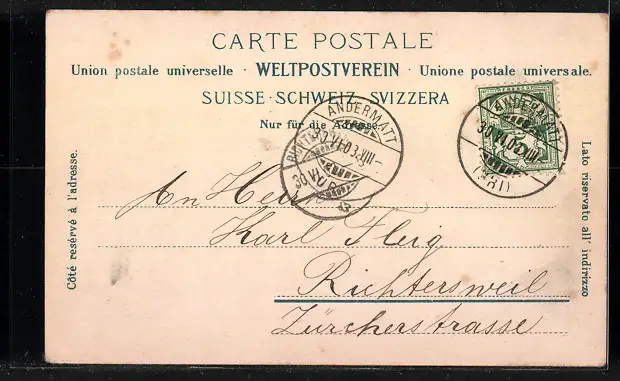 CARTE POSTALE
Union postale universelle · WELTPOSTVEREIN · Unione postale universale.
SUISSE · SCHWEIZ · SVIZZERA
Nur für die Adresse.
Côté resérvé à l'adresse.
Lato riservato all' indirizzo
ANDERMATT
30.VI.03.XIII-
ANDERMATT
30.VI.0
(URI)
An Herr
Karl Fleig
Richtersweil
Zürcherstrasse